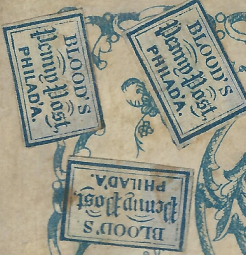 BLOOD'S
Penny Post,
PHILAD'A.
BLOOD'S
Penny Post,
PHILAD'A.
BLOOD'S
Penny Post,
PHILAD'A.